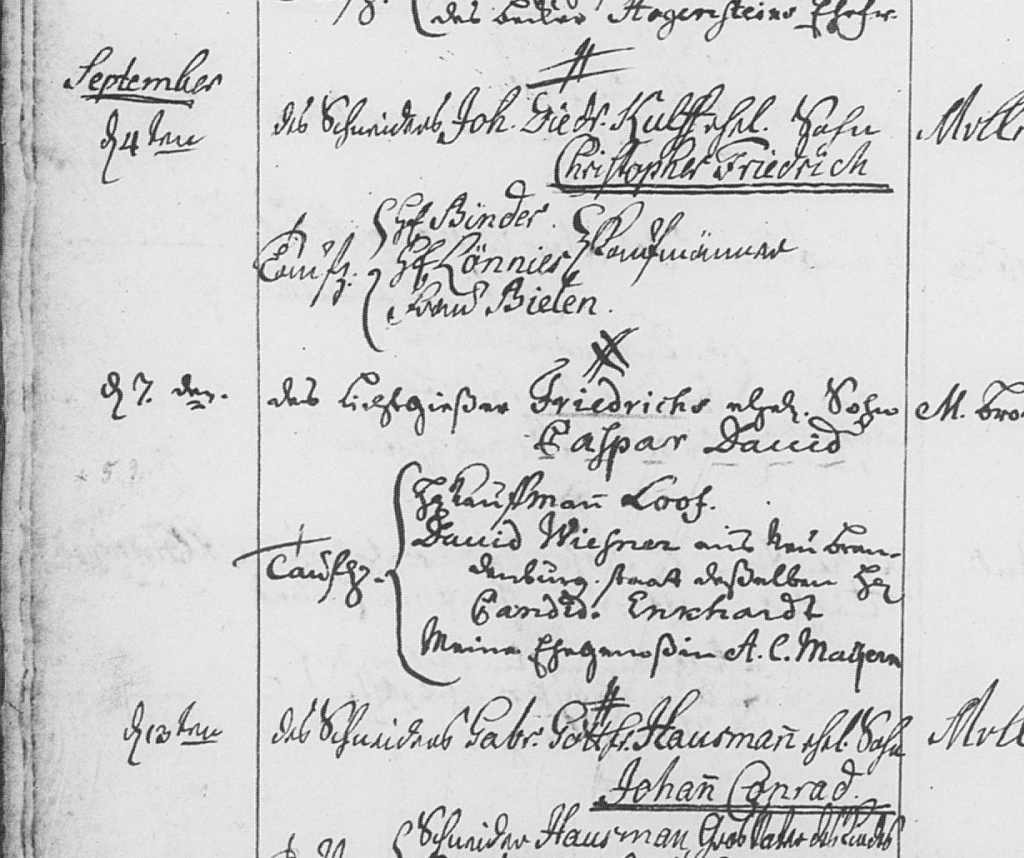 des Becker Hagensteins Ehefr.
September
d 4 ten des Schneiders Joh. Diedr. Kulff ehel. Sohn Moll
Christopher Friedrich
Taufz. H. Binder
H. Lönnies Kaufmänner
Frau Bielen.
d 7. den. des Lichtgießer Friedrichs ehel. Sohn M. Broc
Caspar David
* 5.9.
Taufz. H Kauffman̄ Loof.
David Wiesner aus Neu Bran-
denburg. statt deßelben H
Candid. Enkhardt
Meine Ehegenoßin A. C. Mayern
d 13 ten des Schneiders Gabr. Gottfr. Hausman̄ ehel. Sohn Moll
Johan̄ Conrad.
Schneider Hausman, Gros Vater des Kindes